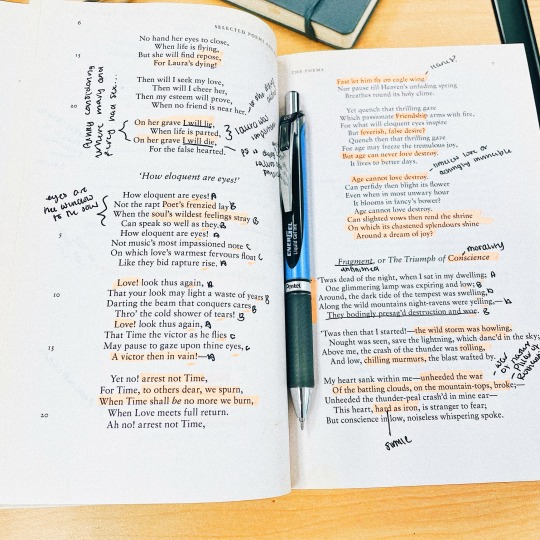 6
SELECTED POEMS
No hand her eyes to close,
When life is flying,
But she will find repose,
For Laura's dying!
15
Then will I seek my love,
Then will I cheer her,
Then my esteem will prove,
When no friend is near her.
20
On her grave I will lie,
When life is parted,
On her grave I will die,
For the false hearted.
'How eloquent are eyes!'
eyes are
the window
to the soul
How eloquent are eyes! A
Not the rapt Poet's frenzied lay B
When the soul's wildest feelings stray B
Can speak so well as they. B
5
How eloquent are eyes! A
Not music's most impassioned note C
On which love's warmest fervours float C
Like they bid rapture rise. A
Love! look thus again, A
10
That your look may light a waste of years B
Darting the beam that conquers cares B
Thro' the cold shower of tears! B
Love! look thus again, A
That Time the victor as he flies C
15
May pause to gaze upon thine eyes, C
A victor then in vain!—
Yet no! arrest not Time,
For Time, to others dear, we spurn,
When Time shall be no more we burn,
20
When Love meets full return.
Ah no! arrest not Time,
THE POEMS
7
Fast let him fly on eagle wing
Nor pause till Heaven's unfading spring
Breathes round its holy clime.
25
Yet quench that thrilling gaze
Which passionate Friendship arms with fire,
For what will eloquent eyes inspire
But feverish, false desire?
Quench then that thrilling gaze
For age may freeze the tremulous joy,
But age can never destroy.
It lives to better days.
Age cannot love destroy.
Can perfidy then blight its flower
Even when in most unwary hour
It blooms in fancy's bower?
Age cannot love destroy.
Can slighted vows then rend the shrine
On which its chastened splendours shine
Around a dream of joy?
morality
Fragment, or The Triumph of Conscience
'Twas dead of the night, when I sat in my dwelling; A
One glimmering lamp was expiring and low; B
Around, the dark tide of the tempest was swelling, b
Along the wild mountains night-ravens were yelling,—
They bodingly presag'd destruction and woe. B
'Twas then that I started!—the wild storm was howling,
Nought was seen, save the lightning, which danc'd in the sky;
Above me, the crash of the thunder was rolling,
And low, chilling murmurs, the blast wafted by.
My heart sank within me—unheeded the war
Of the battling clouds, on the mountain-tops, broke;—
Unheeded the thunder-peal crash'd in mine ear—
This heart, hard as iron, is stranger to fear;
But conscience in low, noiseless whispering spoke.
simile
EnerGel
Liquid Gel Ink
Pentel